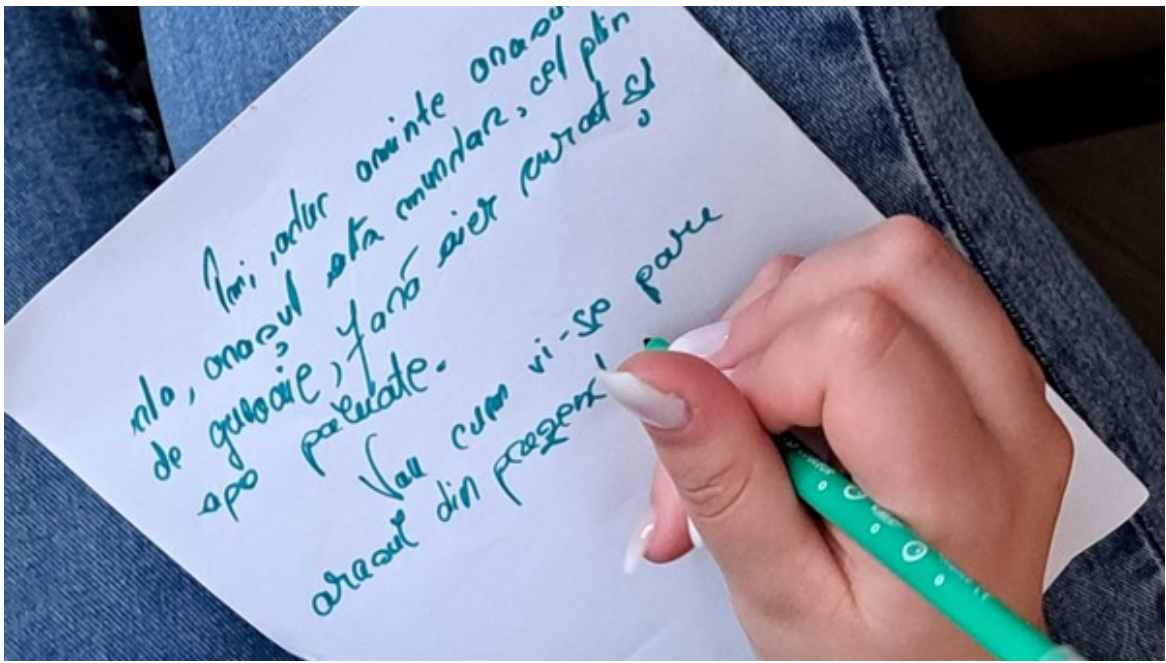 Îmi aduc aminte orașu
ăla, orașul ăla murdar, cel plin
de gunoaie, fără aer curat și
apă poluate.
Vau cum vi-se pare
orașul din prezent